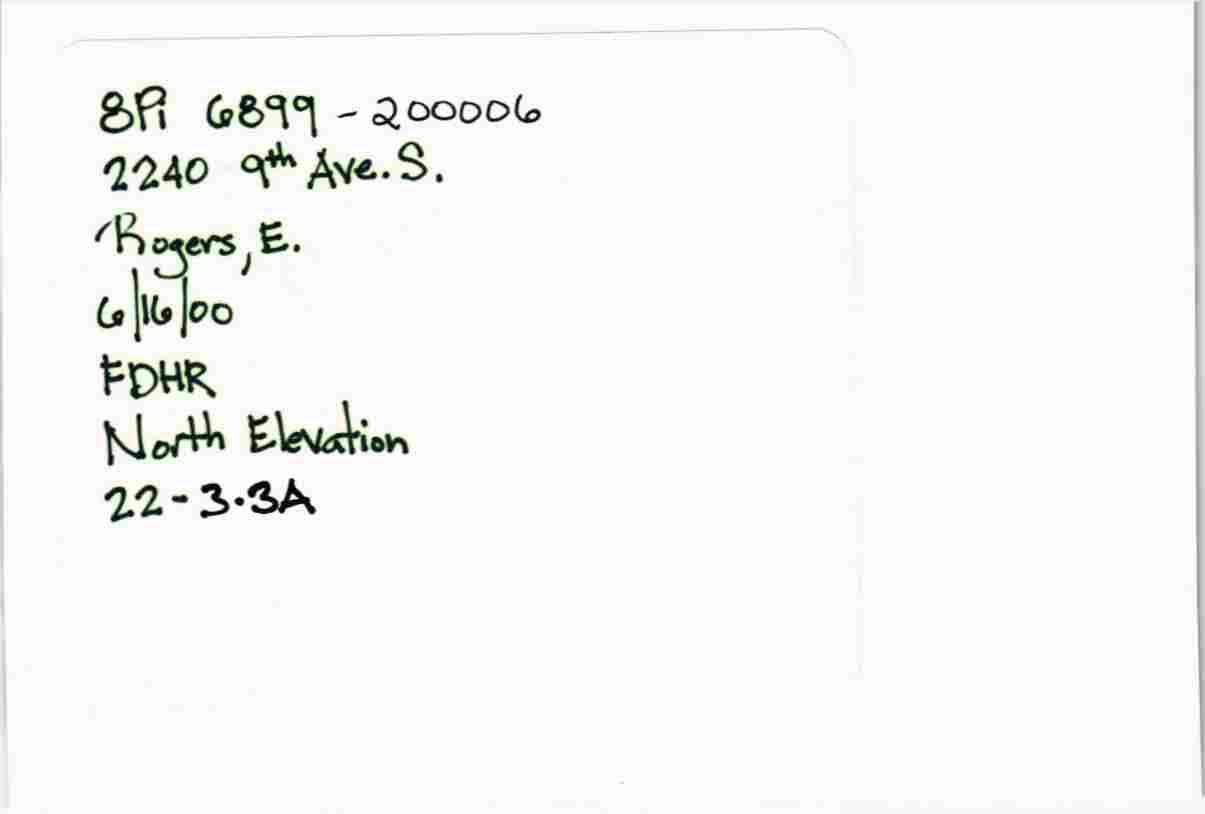 8Pi 6899-200006
2240 9th Ave. S.
Rogers, E.
6/16/00
FDHR
North Elevation
22-3.3A